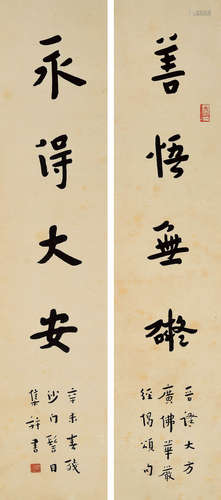 善悟無礙
晉譯大方
廣佛華嚴
經偈頌句
永得大安
辛未春殘
沙門髻目
集并書